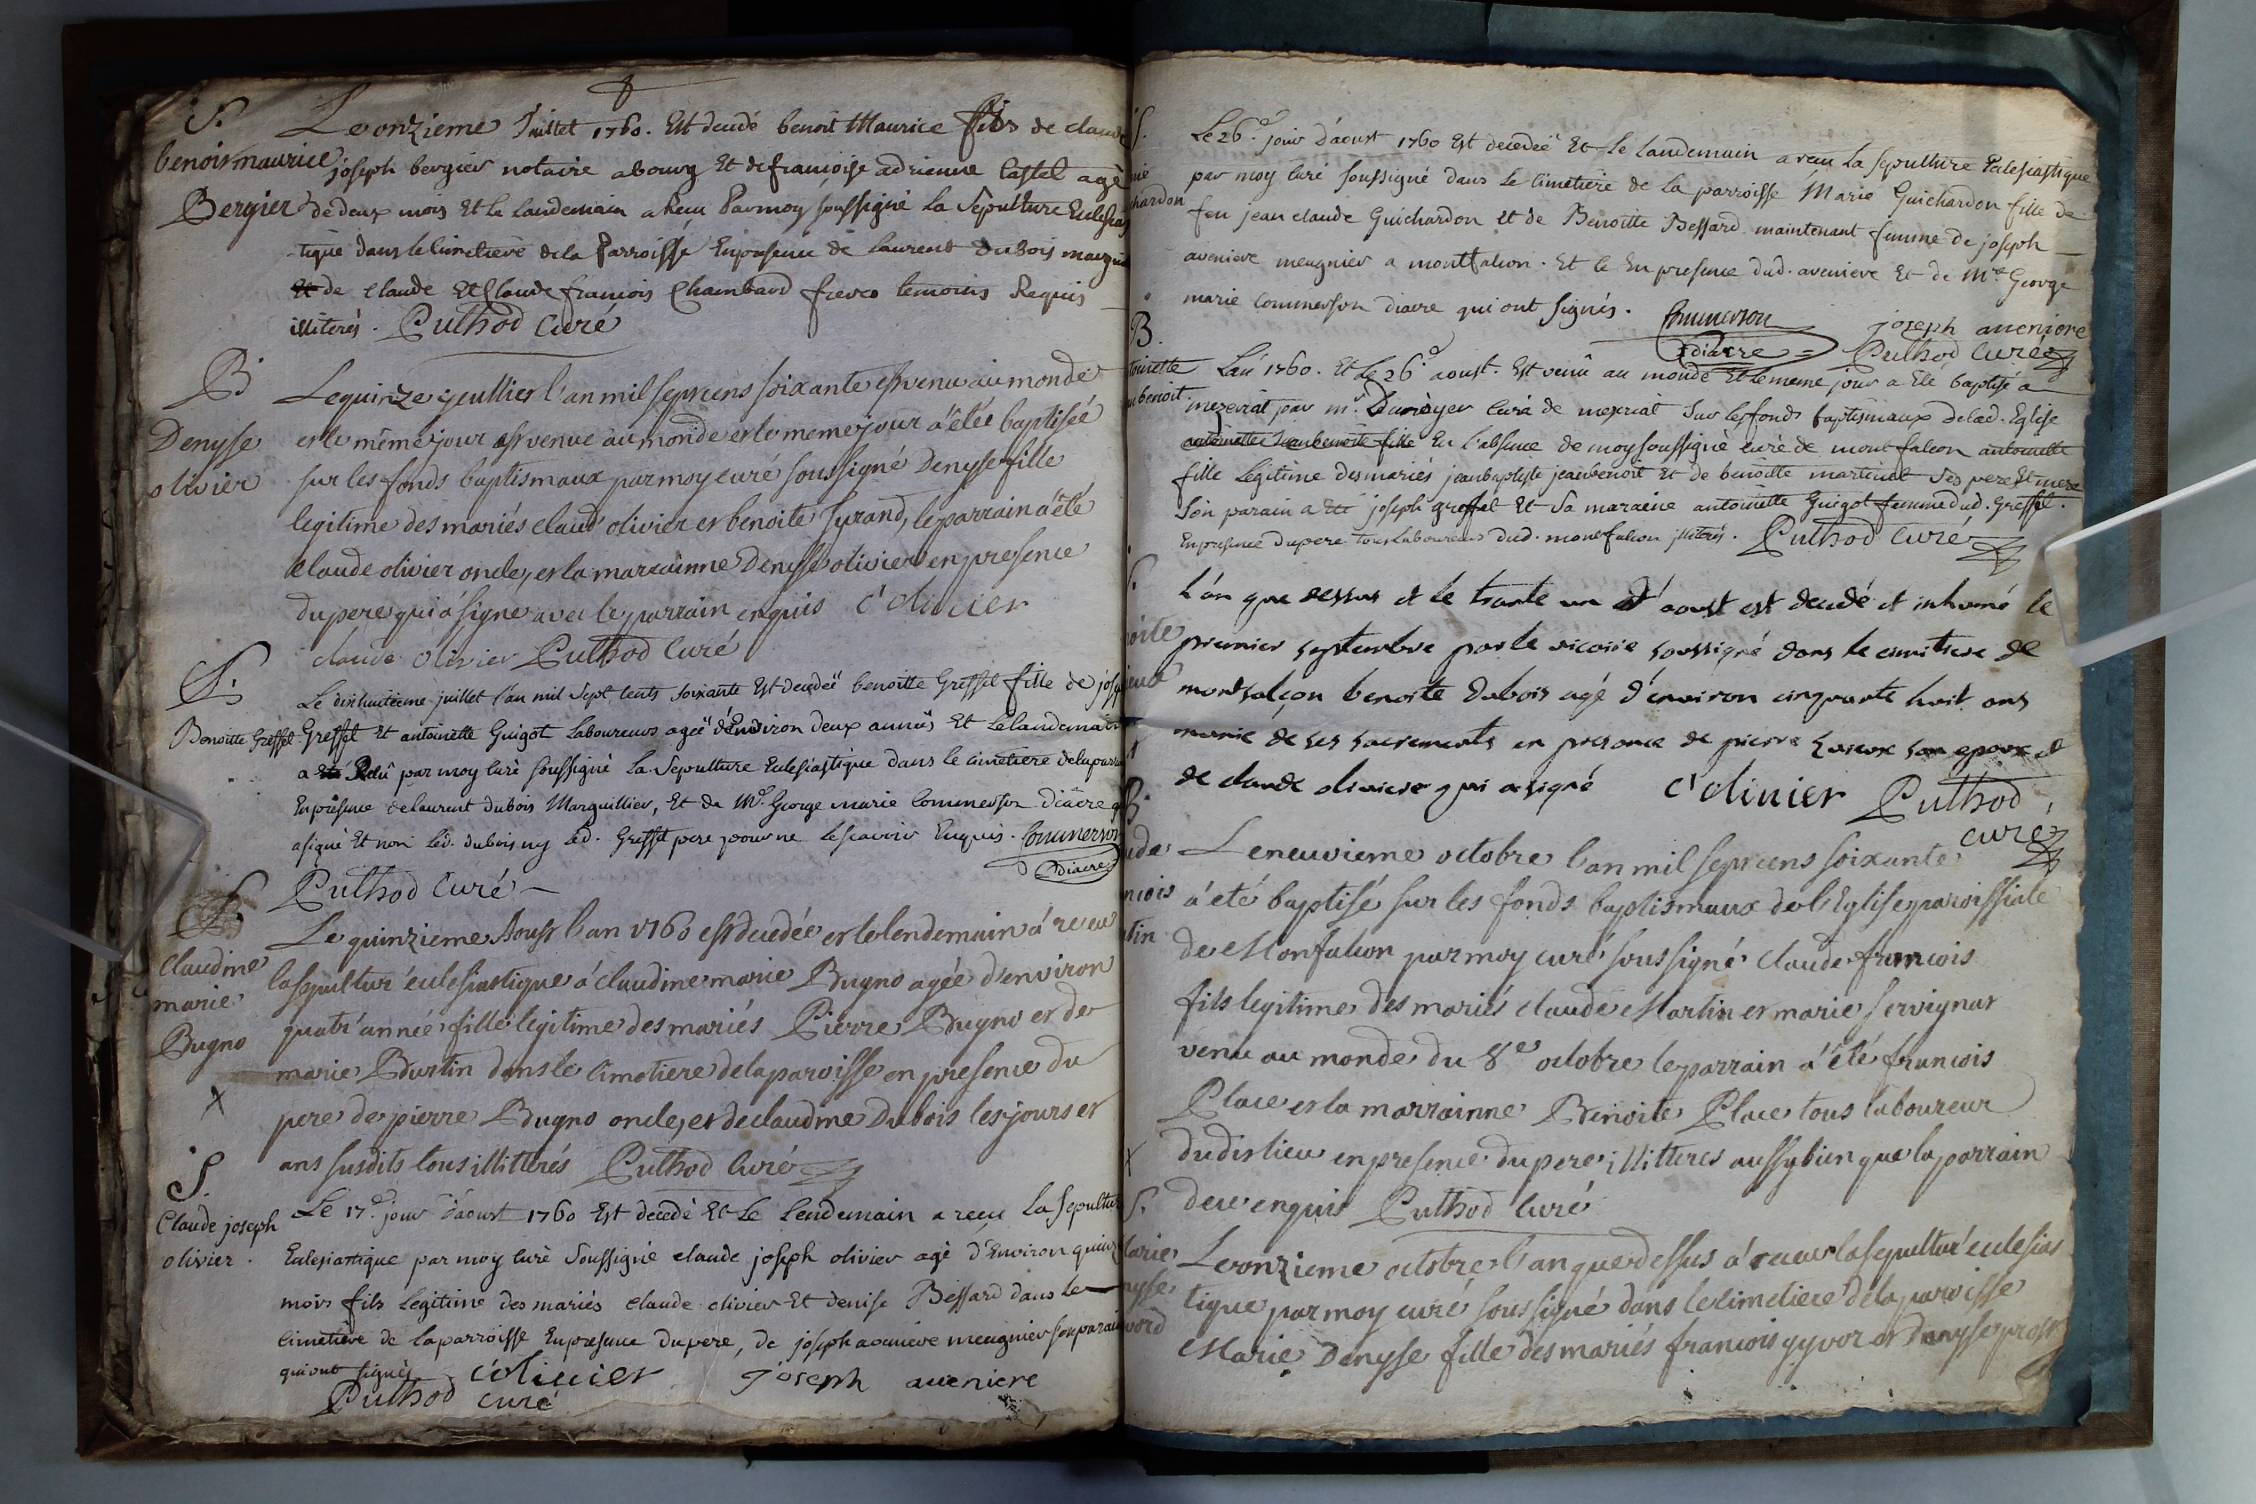 8
S.
benoit maurice
Bergier
Le onzieme Juillet 1760. Est decedé benoit Maurice fils de claude
joseph bergier notaire abourg Et de francoise adrienne Castel agé
de deux mois Et le landemain a Recu Parmoy soussigné la Sepulture Eclesias
-tique dans le Cimetiere dela Parroisse Enpresence de Laurent duBois marguil
Et de claude Et Claude francois Chambard freres temoins Requis
illiterés. Puthod Curé
B
Denyse
olivier
Le quinze jeullier l'an mil sept cens soixante est venu au monde
et le même jour est venue au monde et le meme jour á été baptisée
sur les fonds baptismaux par moy curé soussigné Denyse fille
legitime des mariés claud' olivier et benoite Jurand, le parrain á été
claude olivier oncle, et la marrainne Denyse olivier en presence
du pere qui á signé avec le parrain enquis C'olivier
claude olivier Puthod Curé
S.
Benoitte Greffet
Le dixhuitieme juillet l'an mil Sept cents soixante Est decedeé benoitte Greffet fille de josep
Greffet Et antoinette Guigot Laboureurs ageé d'Environ deux anneés Et Le landemain
a eté Recu par moy Curé soussigné la Sepulture Eclesiastique dans le cimetiere delaparro
Enpresence de laurent dubois Marguillier, Et de Mr. George marie Commerson Diacre q
a signé Et non led. dubois ny led. Greffet pere pour ne lescavoir Enquis. Commerson
Diacre
Puthod Curé
S.
claudine
marie
Bugno
X
Le quinzieme Aoust l'an 1760 est decedée et le lendemain á receu
la sepultur' eclesiastique á claudine marie Bugno agée d'environ
quatr' année fille legitime des mariés Pierre Bugno et de
marie Burtin dans le Cimetiere de la paroisse en presence du
pere de pierre Bugno oncle, et de claudine Dubois les jours et
ans susdits tous illitterés Puthod Curé
S.
Claude joseph
olivier.
Le 17e. jour d'aoust 1760 Est decedé Et Le lendemain a recu la Sepultur
Eclesiastique par moy Curé Soussigné claude joseph olivier agé d'Environ quinz
mois fils Legitime des mariés claude olivier Et denise Bessard dans le
cimetiere de laparroisse Enpresence dupere, de joseph aveniere meugnier son parain
qui ont signés. C'olivier joseph aveniere
Puthod curé
S.
chardon
Le 26e. jour d'aoust 1760 Est decedeé Et le landemain a recu la sepulture Eclesiastique
par moy Curé soussigné dans le Cimetiere de la parroisse Marie Guichardon fille de
feu jean claude Guichardon et de Benoitte Bessard maintenant femme de joseph
aveniere meugnier a montfalcon. Et ce En presence dud. aveniere Et de Mre George
marie Commerson diacre qui ont signés. Commerson
joseph aveniere
diacre Puthod Curé
B.
toinette
benoit
L'an 1760. Et Le 26e aoust. Est venû au monde Et le meme jour a Eté baptisé a
mezeriat par mr. Curé de mexriat Sur les fonds baptismaux delad. Eglise
antoinette jeanbenoite fille En l'absence de moy soussigné curé de montfalcon antoinette
fille Légitime desmariés jeanbaptiste jeanbenoit Et de benoitte martinet Ses pere Et mere
Son parain a Eté joseph greffet Et Sa maraine antoinette Guigot femme dud. Greffet.
Enpresence dupere tous Laboureurs dud. montfalcon illiterés. Puthod Curé
S.
oite
L'an que dessus et le trante un d'aoust est decedé et inhumé le
premier septembre par le vicaire soussigné dans le cimitiere de
montfalcon benoite dubois agé d'environ cinquante huit ans
munie de ses sacrements en presance de pierre son epoux et
de claude oliviere qui a signé C'olivier Puthod
curé
B.
ude
ncois
tin
Le neuvieme octobre l'an mil sept cens soixante
á eté baptisé sur les fonds baptismaux de l'Eglise paroissiale
de Monfalcon par moy curé soussigné claude francois
fils legitime des mariés claude Martin et marie servignat
venu au monde du 8e octobre le parrain á été francois
Place et la marrainne Benoite Place tous laboureur
dudit lieu en presence du pere illitteres aussy bien que la parrain
de ce enquis Puthod Curé
X
S.
Marie
nyse
vord
Le onzieme octobre l'an que dessus á receu la sepultur' eclesias
tique par moy curé soussigné dans le Cimetiere de la paroisse
Marie Denyse fille des mariés francois gyvor et Denyse prost